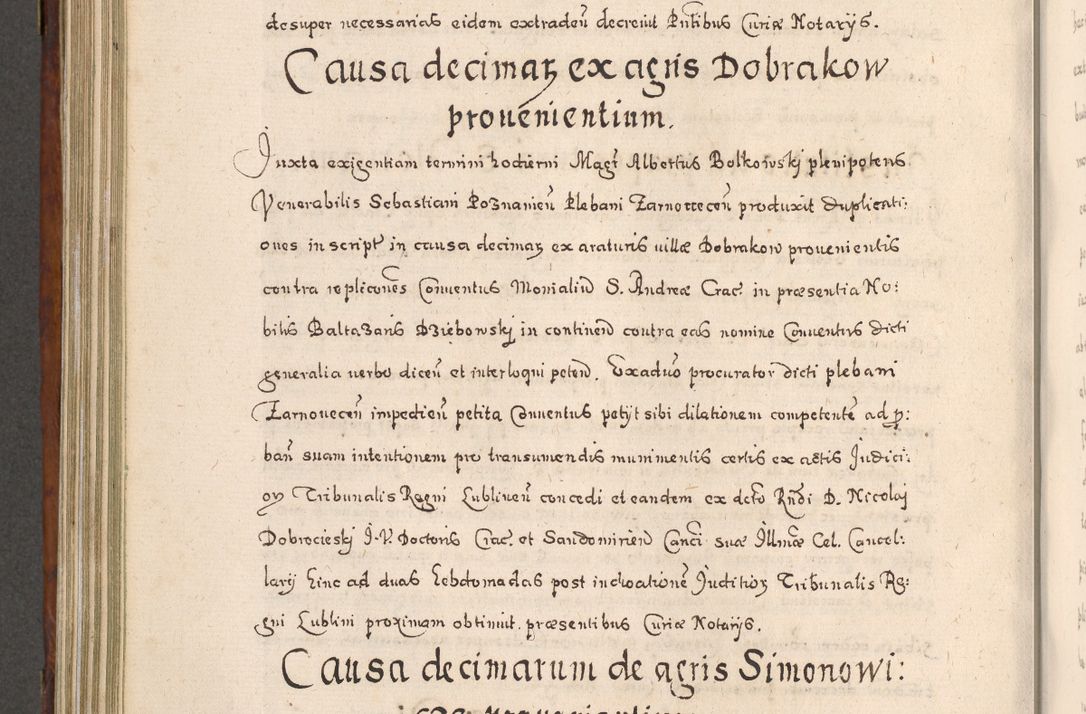 desuper necessarias eidem extradeñ decrevit Pñtibus Curiæ Notarijs.
Causa decimaꝝ ex agris Dobrakow
prouenientium.
Juxta exigentiam termini hodierni Magr̃ Albertus Bolkowskj plenipotens
Venerabilis Sebastiani Poznanieñ Plebani Zarnoueceñ produxit duplicati:
ones in script̃ in causa decimaꝝ ex araturis villæ Dobrakow prouenientis
contra replicoñes Conuentus Monialiũ S. Andreæ Crac. in præsentia No:
bilis Baltazaris Dziebowskj in continẽ contra eas nomine Conuentus dicti
generalia uerbo diceñ et interloqui peteñ. Exaduo procurator dicti plebani
Zarnoueceñ impedieñ petita Conuentus petijt sibi dilationem competentẽ ad ꝓ:
bañ suam intentionem pro transumendis munimentis certis ex actis Judici:
oꝝ Tribunalis Regni Lublineñ concedi et eandem ex dcto Rñdi D. Nicolaj
Dobrocieskj J. V. Doctoris Crac. et Sandomirieñ Canci suæ Illmæ Cel. Cancel:
larij hinc ad duas hebdomadas post inchoationẽ Juditioꝝ Tribunalis Re:
gni Lublini proximam obtinuit. præsentibus Curiæ Notarijs.
Causa decimarum de agris Simonowi: